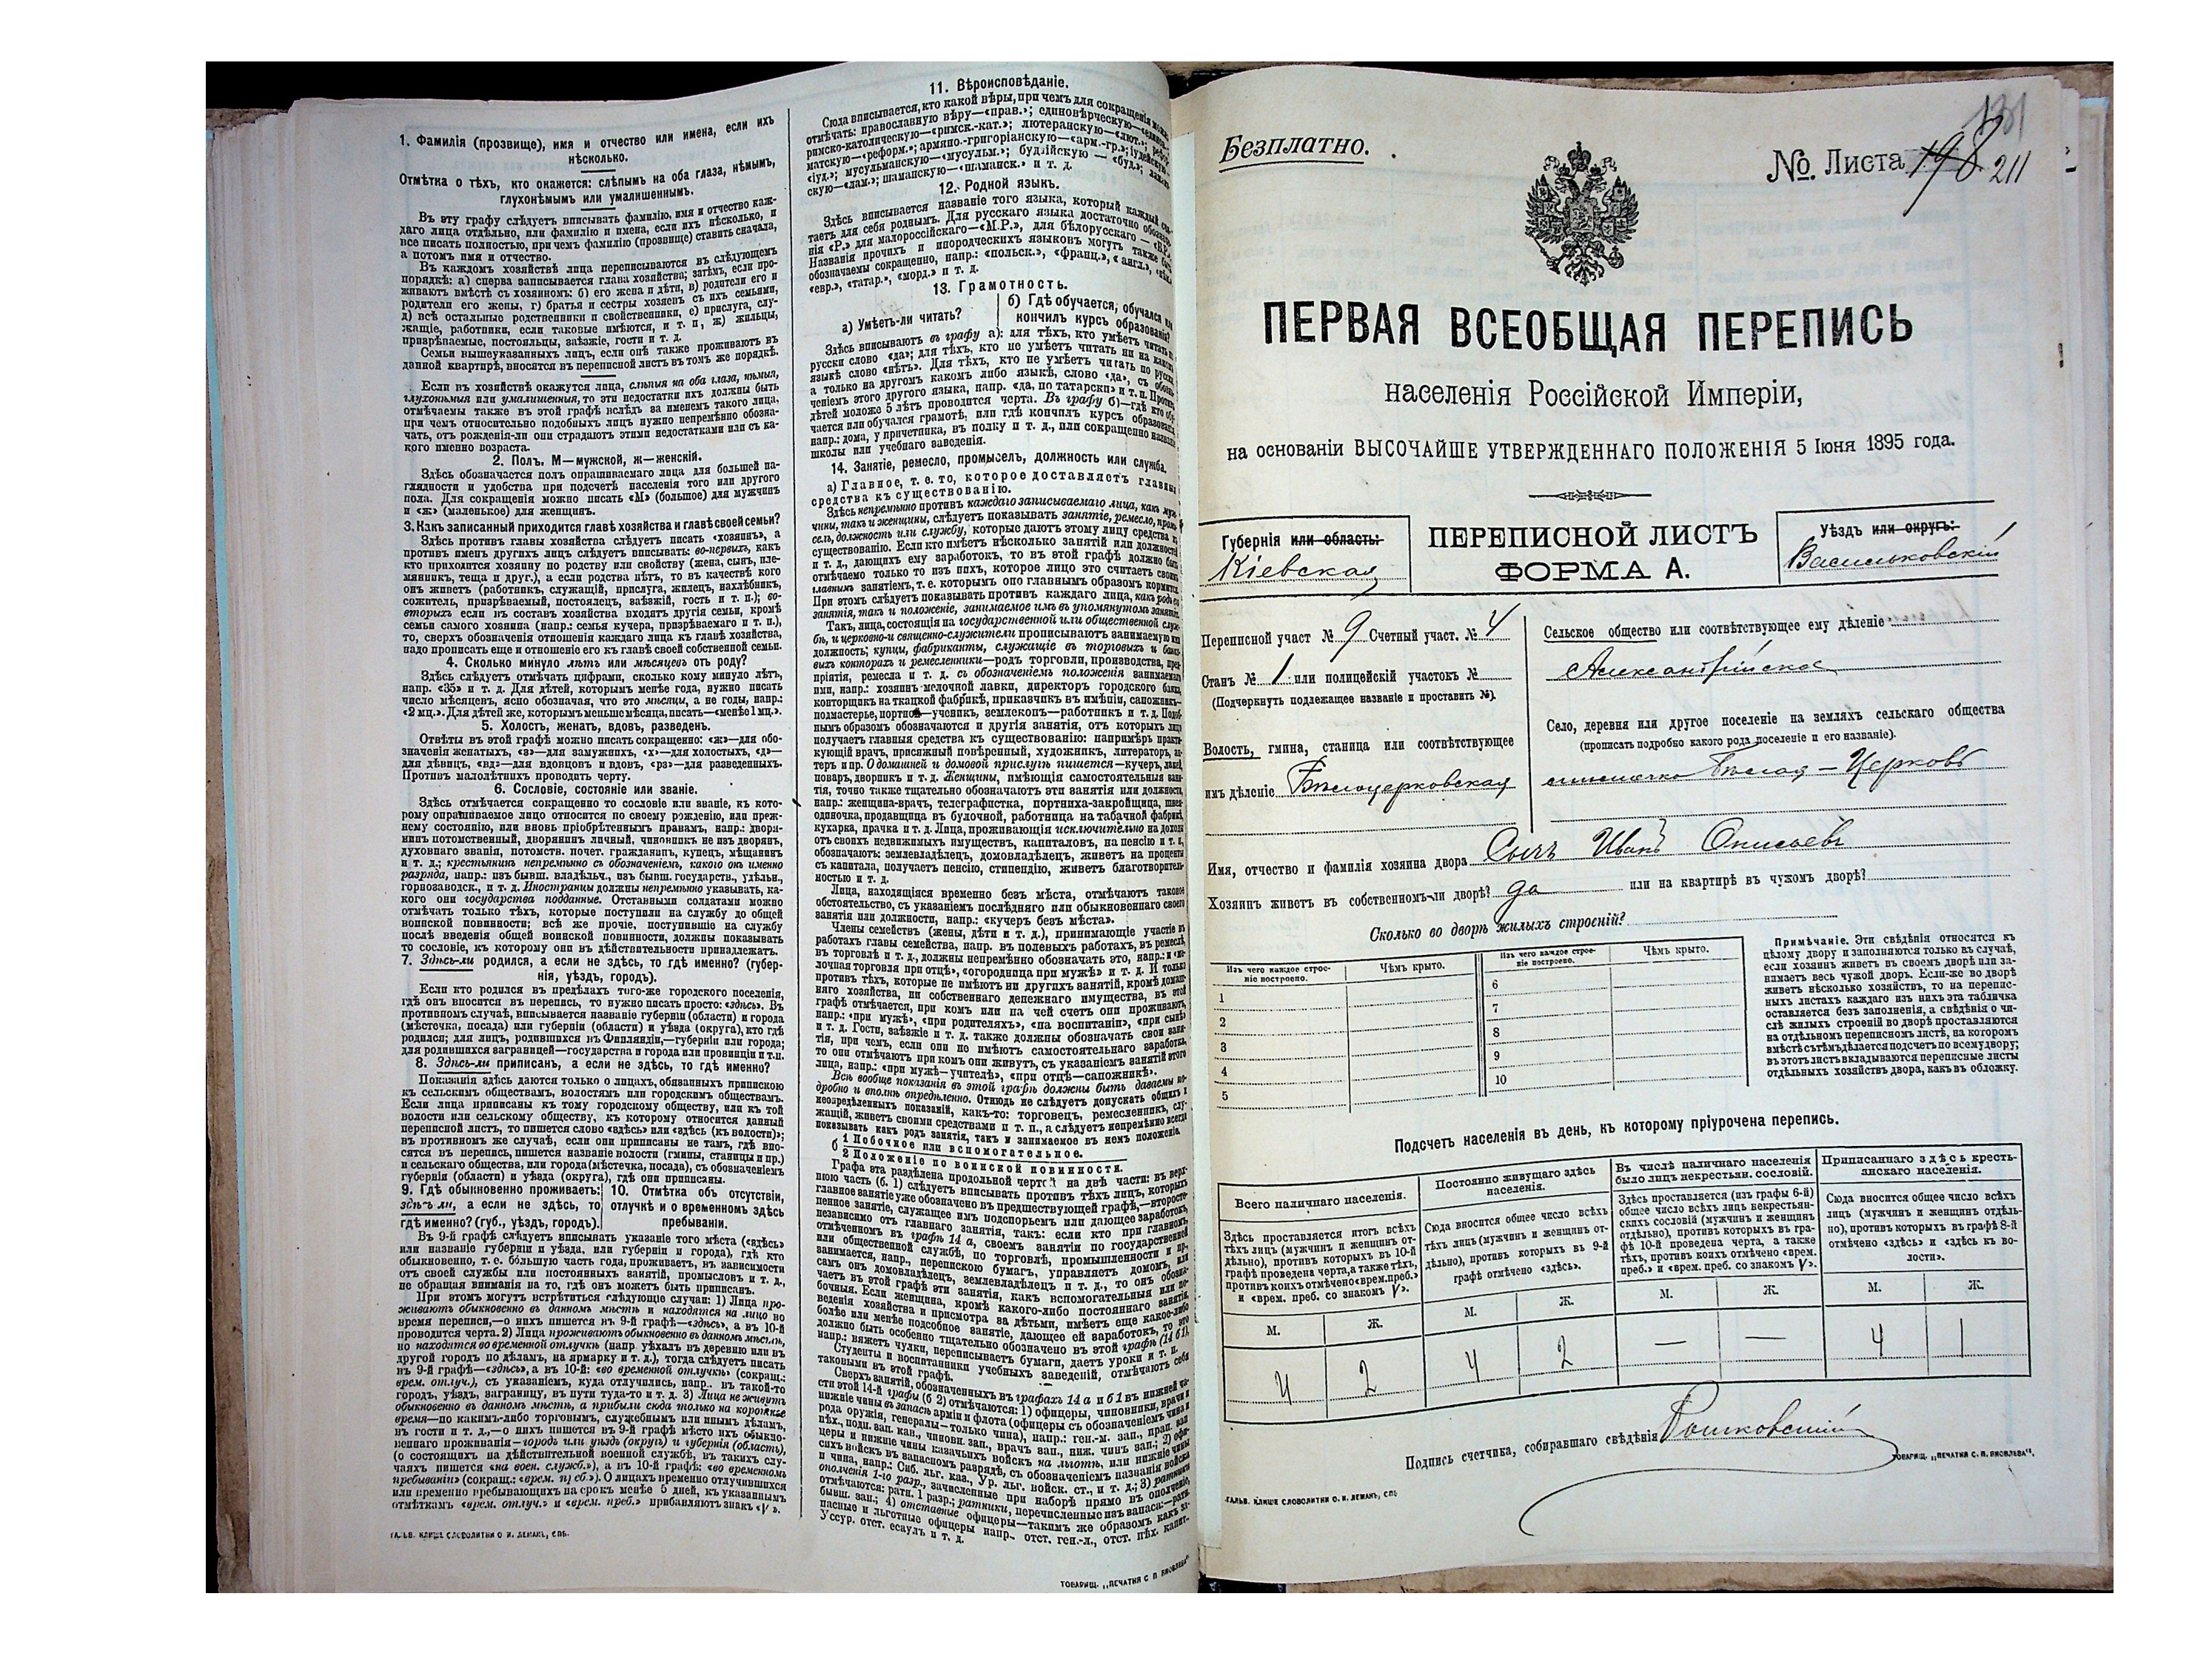 1. Фамилія (прозвище), имя и отчество или имена, если ихъ
нѣсколько.
Отмѣтка о тѣхъ, кто окажется: слѣпымъ на оба глаза, нѣмымъ,
глухонѣмымъ или умалишеннымъ.
Въ эту графу слѣдуетъ вписывать фамилію, имя и отчество каж-
даго лица отдѣльно, или фамилію и имена, если ихъ нѣсколько, и
все писать полностью, при чемъ фамилію (прозвище) ставить сначала,
а потомъ имя и отчество.
Въ каждомъ хозяйствѣ лица переписываются въ слѣдующемъ
порядкѣ: а) сперва записывается глава хозяйства; затѣмъ, если про-
живаютъ вмѣстѣ съ хозяиномъ: б) его жена и дѣти, в) родители его и
родители его жены, г) братья и сестры хозяевъ съ ихъ семьями,
д) всѣ остальные родственники и свойственники, е) прислуга, слу-
жащіе, работники, если таковые имѣются, и т. п, ж) жильцы,
призрѣваемые, постояльцы, заѣзжіе, гости и т. д.
Семьи вышеуказанныхъ лицъ, если онѣ также проживаютъ въ
данной квартирѣ, вносятся въ переписной листъ въ томъ же порядкѣ.
Если въ хозяйствѣ окажутся лица, слѣпыя на оба глаза, нѣмыя,
глухонѣмыя или умалишенныя, то эти недостатки ихъ должны быть
отмѣчаемы также въ этой графѣ вслѣдъ за именемъ такого лица,
при чемъ относительно подобныхъ лицъ нужно непремѣнно обозна-
чать, отъ рожденія-ли они страдаютъ этими недостатками или съ ка-
кого именно возраста.
2. Полъ. М—мужской, ж—женскій.
Здѣсь обозначается полъ опрашиваемаго лица для большей на-
глядности и удобства при подсчетѣ населенія того или другого
пола. Для сокращенія можно писать «М» (большое) для мужчинъ
и «ж» (маленькое) для женщинъ.
3. Какъ записанный приходится главѣ хозяйства и главѣ своей семьи?
Здѣсь противъ главы хозяйства слѣдуетъ писать «хозяинъ», а
противъ именъ другихъ лицъ слѣдуетъ вписывать: во-первыхъ, какъ
кто приходится хозяину по родству или свойству (жена, сынъ, пле-
мянникъ, теща и друг.), а если родства нѣтъ, то въ качествѣ кого
онъ живетъ (работникъ, служащій, прислуга, жилецъ, нахлѣбникъ,
сожитель, призрѣваемый, постоялецъ, заѣзжій, гость и т. п.); во-
вторыхъ если въ составъ хозяйства входятъ другія семьи, кромѣ
семьи самого хозяина (напр.: семья кучера, призрѣваемаго и т. п.),
то, сверхъ обозначенія отношенія каждаго лица къ главѣ хозяйства,
надо прописать еще и отношеніе его къ главѣ своей собственной семьи.
4. Сколько минуло лѣтъ или мѣсяцевъ отъ роду?
Здѣсь слѣдуетъ отмѣчать цифрами, сколько кому минуло лѣтъ,
напр. «35» и т. д. Для дѣтей, которымъ менѣе года, нужно писать
число мѣсяцевъ, ясно обозначая, что это мѣсяцы, а не годы, напр.:
«2 мц.». Для дѣтей же, которымъ меньше мѣсяца, писать—«менѣе 1 мц.».
5. Холостъ, женатъ, вдовъ, разведенъ.
Отвѣты въ этой графѣ можно писать сокращенно: «ж»—для обо-
значенія женатыхъ, «з»—для замужнихъ, «х»—для холостыхъ, «д»—
для дѣвицъ, «вд»—для вдовцовъ и вдовъ, «рз»—для разведенныхъ.
Противъ малолѣтнихъ проводить черту.
6. Сословіе, состояніе или званіе.
Здѣсь отмѣчается сокращенно то сословіе или званіе, къ кото-
рому опрашиваемое лицо относится по своему рожденію, или преж-
нему состоянію, или вновь пріобрѣтеннымъ правамъ, напр.: дворя-
нинъ потомственный, дворянинъ личный, чиновникъ не изъ дворянъ,
духовнаго званія, потомств. почет. гражданинъ, купецъ, мѣщанинъ
и т. д.; крестьянинъ непремѣнно съ обозначеніемъ, какого онъ именно
разряда, напр.: изъ бывш. владѣльч., изъ бывш. государств., удѣльн.,
горнозаводск., и т. д. Иностранцы должны непремѣнно указывать, ка-
кого они государства подданные. Отставными солдатами можно
отмѣчать только тѣхъ, которые поступили на службу до общей
воинской повинности; всѣ же прочіе, поступившіе на службу
послѣ введенія общей воинской повинности, должны показывать
то сословіе, къ которому они въ дѣйствительности принадлежатъ.
7. Здѣсь-ли родился, а если не здѣсь, то гдѣ именно? (губер-
нія, уѣздъ, городъ).
Если кто родился въ предѣлахъ того-же городского поселенія,
гдѣ онъ вносится въ перепись, то нужно писать просто: «здѣсь». Въ
противномъ случаѣ, вписывается названіе губерніи (области) и города
(мѣстечка, посада) или губерніи (области) и уѣзда (округа), кто гдѣ
родился; для лицъ, родившихся въ Финляндіи,—губерніи или города;
для родившихся заграницей—государства и города или провинціи и т.п.
8. Здѣсь-ли приписанъ, а если не здѣсь, то гдѣ именно?
Показанія здѣсь даются только о лицахъ, обязанныхъ припискою
къ сельскимъ обществамъ, волостямъ или городскимъ обществамъ.
Если лица приписаны къ тому городскому обществу, или къ той
волости или сельскому обществу, къ которому относится данный
переписной листъ, то пишется слово «здѣсь» или «здѣсь (къ волости)»;
въ противномъ же случаѣ, если они приписаны не тамъ, гдѣ вно-
сятся въ перепись, пишется названіе волости (гмины, станицы и пр.)
и сельскаго общества, или города (мѣстечка, посада), съ обозначеніемъ
губерніи (области) и уѣзда (округа), гдѣ они приписаны.
9. Гдѣ обыкновенно проживаетъ: здѣсь ли, а если не здѣсь, то гдѣ именно? (губ., уѣздъ, городъ).
10. Отмѣтка объ отсутствіи, отлучкѣ и о временномъ здѣсь пребываніи.
Въ 9-й графѣ слѣдуетъ вписывать указаніе того мѣста («здѣсь»
или названіе губерніи и уѣзда, или губерніи и города), гдѣ кто
обыкновенно, т. е. бóльшую часть года, проживаетъ, въ зависимости
отъ своей службы или постоянныхъ занятій, промысловъ и т. д.,
не обращая вниманія на то, гдѣ онъ можетъ быть приписанъ.
При этомъ могутъ встрѣтиться слѣдующіе случаи: 1) Лица про-
живаютъ обыкновенно въ данномъ мѣстѣ и находятся на лицо во
время переписи,—о нихъ пишется въ 9-й графѣ—«здѣсь», а въ 10-й
проводится черта. 2) Лица проживаютъ обыкновенно въ данномъ мѣстѣ,
но находятся во временной отлучкѣ (напр. уѣхалъ въ деревню или въ
другой городъ по дѣламъ, на ярмарку и т. д.), тогда слѣдуетъ писать
въ 9-й графѣ—«здѣсь», а въ 10-й: «во временной отлучкѣ» (сокращ.:
врем. отлуч.), съ указаніемъ, куда отлучились, напр.. въ такой-то
городъ, уѣздъ, заграницу, въ пути туда-то и т. д. 3) Лица не живутъ
обыкновенно въ данномъ мѣстѣ, а прибыли сюда только на короткое
время—по какимъ-либо торговымъ, служебнымъ или инымъ дѣламъ,
въ гости и т. д.,—о нихъ пишется въ 9-й графѣ мѣсто ихъ обыкно-
веннаго проживанія—городъ или уѣздъ (округъ) и губернія (область),
(о состоящихъ на дѣйствительной военной службѣ, въ такихъ слу-
чаяхъ пишется «на воен. служб.»), а въ 10-й графѣ: «во временномъ
пребываніи» (сокращ.: «врем. преб.»). О лицахъ временно отлучившихся
или временно пребывающихъ на срокъ менѣе 5 дней, къ указаннымъ
отмѣткамъ «врем. отлуч.» и «врем. преб.» прибавляютъ знакъ «V».
ГАЛЬВ. КЛИШЕ СЛОВОЛИТНИ О. И. ЛЕМАНЪ, СПБ.
11. Вѣроисповѣданіе.
Сюда вписывается, кто какой вѣры, при чемъ для сокращенія
отмѣчать: православную вѣру—«прав.»; единовѣрческую—
римско-католическую—«римск.-кат.»; лютеранскую—«лют.»;
матскую—«реформ.»; армяно-григоріанскую—«арм.-гр.»;
«іуд.»; мусульманскую—«мусульм.»; буддійскую—«буд.»;
скую—«лам.»; шаманскую—«шаманск.» и т. д.
12. Родной языкъ.
Здѣсь вписывается названіе того языка, который каждый
таетъ для себя роднымъ. Для русскаго языка достаточно
нія «Р.» для малороссійскаго—«М.Р.», для бѣлорусскаго—
Названія прочихъ и инородческихъ языковъ могутъ также
обозначаемы сокращенно, напр.: «польск.», «франц.», «англ.»,
«евр.», «татар.», «морд.» и т. д.
13. Грамотность.
а) Умѣетъ-ли читать?
б) Гдѣ обучается, обучался или кончилъ курсъ образованія?
Здѣсь вписываютъ въ графу а): для тѣхъ, кто умѣетъ читать
русски слово «да»; для тѣхъ, кто не умѣетъ читать ни на какомъ
языкѣ слово «нѣтъ». Для тѣхъ, кто не умѣетъ читать по русски
а только на другомъ какомъ либо языкѣ, слово «да», съ
ченіемъ этого другого языка, напр. «да, по татарски» и т. п.
дѣтей моложе 5 лѣтъ проводится черта. Въ графу б)—гдѣ кто
чается или обучался грамотѣ, или гдѣ кончилъ курсъ образованія
напр.: дома, у причетника, въ полку и т. д., или сокращенно
школы или учебнаго заведенія.
14. Занятіе, ремесло, промыселъ, должность или служба.
а) Главное, т. е. то, которое доставляетъ главныя
средства къ существованію.
Здѣсь непремѣнно противъ каждаго записываемаго лица, какъ муж-
чины, такъ и женщины, слѣдуетъ показывать занятіе, ремесло,
сель, должность или службу, которые даютъ этому лицу средства къ
существованію. Если кто имѣетъ нѣсколько занятій или должностей
и т. д., дающихъ ему заработокъ, то въ этой графѣ должно быть
отмѣчаемо только то изъ нихъ, которое лицо это считаетъ своимъ
главнымъ занятіемъ, т. е. которымъ оно главнымъ образомъ кормится.
При этомъ слѣдуетъ показывать противъ каждаго лица, какъ родъ его
занятія, такъ и положеніе, занимаемое имъ въ упомянутомъ занятіи.
Такъ, лица, состоящія на государственной или общественной служ-
бѣ, и церковно- и священно-служители прописываютъ занимаемую ими
должность; купцы, фабриканты, служащіе въ торговыхъ и банко-
выхъ конторахъ и ремесленники—родъ торговли, производства, пред-
пріятія, ремесла и т. д. съ обозначеніемъ положенія занимаемаго
ими, напр.: хозяинъ мелочной лавки, директоръ городского банка,
конторщикъ на ткацкой фабрикѣ, приказчикъ въ имѣніи, сапожникъ—
подмастерье, портной—ученикъ, землекопъ—работникъ и т. д. Подоб-
нымъ образомъ обозначаются и другія занятія, отъ которыхъ лицо
получаетъ главныя средства къ существованію: напримѣръ практи-
кующій врачъ, присяжный повѣренный, художникъ, литераторъ, ак-
теръ и пр. О домашней и домовой прислугѣ пишется—кучеръ, лакей,
поваръ, дворникъ и т. д. Женщины, имѣющія самостоятельныя заня-
тія, точно также тщательно обозначаютъ эти занятія или должности,
напр.: женщина-врачъ, телеграфистка, портниха-закройщица, швея-
одиночка, продавщица въ булочной, работница на табачной фабрикѣ,
кухарка, прачка и т. д. Лица, проживающія исключительно на доходы
отъ своихъ недвижимыхъ имуществъ, капиталовъ, на пенсію и т. п.,
обозначаютъ: землевладѣлецъ, домовладѣлецъ, живетъ на проценты
съ капитала, получаетъ пенсію, стипендію, живетъ благотворитель-
ностью и т. д.
Лица, находящіяся временно безъ мѣста, отмѣчаютъ таковое
обстоятельство, съ указаніемъ послѣдняго или обыкновеннаго своего
занятія или должности, напр.: «кучеръ безъ мѣста».
Члены семействъ (жены, дѣти и т. д.), принимающіе участіе въ
работахъ главы семейства, напр. въ полевыхъ работахъ, въ ремеслѣ,
въ торговлѣ и т. д., должны непремѣнно обозначать это, напр.: «ме-
лочная торговля при отцѣ», «огородница при мужѣ» и т. д. И только
противъ тѣхъ, которые не имѣютъ ни другихъ занятій, кромѣ домаш-
няго хозяйства, ни собственнаго денежнаго имущества, въ этой
графѣ отмѣчается, при комъ или на чей счетъ они проживаютъ,
напр.: «при мужѣ», «при родителяхъ», «на воспитаніи», «при сынѣ»
и т. д. Гости, заѣзжіе и т. д. также должны обозначать свои заня-
тія, при чемъ, если они не имѣютъ самостоятельнаго заработка,
то они отмѣчаютъ при комъ они живутъ, съ указаніемъ занятій этого
лица, напр.: «при мужѣ—учителѣ», «при отцѣ—сапожникѣ».
Всѣ вообще показанія въ этой графѣ должны быть даваемы по-
дробно и вполнѣ опредѣленно. Отнюдь не слѣдуетъ допускать общихъ и
неопредѣленныхъ показаній, какъ-то: торговецъ, ремесленникъ, слу-
жащій, живетъ своими средствами и т. п., а слѣдуетъ непремѣнно всегда
показывать какъ родъ занятія, такъ и занимаемое въ немъ положеніе.
б 1 Побочное или вспомогательное.
2 Положеніе по воинской повинности.
Графа эта раздѣлена продольной чертой на двѣ части: въ верх-
нюю часть (б. 1) слѣдуетъ вписывать противъ тѣхъ лицъ, которыхъ
главное занятіе уже обозначено въ предшествующей графѣ,—второсте-
пенное занятіе, служащее имъ подспорьемъ или дающее заработокъ,
независимо отъ главнаго занятія, такъ: если кто при главномъ,
отмѣченномъ въ графѣ 14 а, своемъ занятіи по государственной
или общественной службѣ, по торговлѣ, промышленности и пр.,
занимается, напр., перепискою бумагъ, управляетъ домомъ, или
самъ онъ домовладѣлецъ, землевладѣлецъ и т. д., то онъ обозна-
чаетъ въ этой графѣ эти занятія, какъ вспомогательныя или по-
бочныя. Если женщина, кромѣ какого-либо постояннаго занятія,
веденія хозяйства и присмотра за дѣтьми, имѣетъ еще какое-либо
болѣе или менѣе подсобное занятіе, дающее ей заработокъ, то это
должно быть особенно тщательно обозначено въ этой графѣ (14 б 1),
напр.: вяжетъ чулки, переписываетъ бумаги, даетъ уроки и т. п.
Студенты и воспитанники учебныхъ заведеній, отмѣчаютъ себя
таковыми въ этой графѣ.
Сверхъ занятій, обозначенныхъ въ графахъ 14 а и б 1 въ нижней ча-
сти этой 14-й графы (б 2) отмѣчаются: 1) офицеры, чиновники, врачи и
нижніе чины въ запасѣ арміи и флота (офицеры съ обозначеніемъ чина и
рода оружія, генералы—только чина), напр.: ген.-м. зап., прап. зап.
пѣх., подп. зап. кав., чиновн. зап., врачъ зап., ниж. чинъ зап.; 2) офи-
церы и нижніе чины казачьихъ войскъ на льготѣ, или нижніе чины
сихъ войскъ въ запасномъ разрядѣ, съ обозначеніемъ названія войска
и чина, напр.: Сиб. льг. каз., Ур. льг. войск. ст., и т. д.; 3) ратники
ополченія 1-го разр., зачисленные при наборѣ прямо въ ополченіе,
отмѣчаются: ратн. 1 разр.; ратники, перечисленные изъ запаса:—ратн.
бывш. зап.; 4) отставные офицеры—такимъ же образомъ какъ за-
пасные и льготные офицеры напр.. отст. ген.-л., отст. пѣх. капит.,
Уссур. отст. есаулъ и т. д.
ТОВАРИЩ. „ПЕЧАТНЯ С. П. ЯКОВЛЕВА“.
131
Безплатно.
№. Листа 198 211
ПЕРВАЯ ВСЕОБЩАЯ ПЕРЕПИСЬ
населенія Россійской Имперіи,
на основаніи ВЫСОЧАЙШЕ УТВЕРЖДЕННАГО ПОЛОЖЕНІЯ 5 Іюня 1895 года.
Губернія или область:
Кіевская
ПЕРЕПИСНОЙ ЛИСТЪ
ФОРМА А.
Уѣздъ или округъ:
Васильковскій
Переписной участ № 9 Счетный участ. № 4
Станъ № 1 или полицейскій участокъ №
(Подчеркнуть подлежащее названіе и проставить №).
Волость, гмина, станица или соотвѣтствующее
имъ дѣленіе Бѣлоцерковская
Сельское общество или соотвѣтствующее ему дѣленіе
Александрійское
Село, деревня или другое поселеніе на земляхъ сельскаго общества
(прописать подробно какого рода поселеніе и его названіе).
мѣстечко Бѣлая - Церковь
Имя, отчество и фамилія хозяина двора Сычъ Иванъ Онисьевъ
Хозяинъ живетъ въ собственномъ-ли дворѣ? да или на квартирѣ въ чужомъ дворѣ?
Сколько во дворѣ жилыхъ строеній?
Изъ чего каждое строе-
ніе построено.
Чѣмъ крыто.
Изъ чего каждое строе-
ніе построено.
Чѣмъ крыто.
1
2
3
4
5
6
7
8
9
10
Примѣчаніе. Эти свѣдѣнія относятся къ
цѣлому двору и заполняются только въ случаѣ,
если хозяинъ живетъ въ своемъ дворѣ или за-
нимаетъ весь чужой дворъ. Если-же во дворѣ
живетъ нѣсколько хозяйствъ, то на перепис-
ныхъ листахъ каждаго изъ нихъ эта табличка
оставляется безъ заполненія, а свѣдѣнія о чи-
слѣ жилыхъ строеній во дворѣ проставляются
на отдѣльномъ переписномъ листѣ, на которомъ
вмѣстѣ съ тѣмъ дѣлается подсчетъ по всему двору;
въ этотъ листъ вкладываются переписные листы
отдѣльныхъ хозяйствъ двора, какъ въ обложку.
Подсчетъ населенія въ день, къ которому пріурочена перепись.
Всего наличнаго населенія.
Здѣсь проставляется итогъ всѣхъ
тѣхъ лицъ (мужчинъ и женщинъ от-
дѣльно), противъ которыхъ въ 10-й
графѣ проведена черта, а также тѣхъ,
противъ коихъ отмѣчено «врем. преб.»
и «врем. преб. со знакомъ V».
М. Ж.
4 2
Постоянно живущаго здѣсь
населенія.
Сюда вносится общее число всѣхъ
тѣхъ лицъ (мужчинъ и женщинъ от-
дѣльно), противъ которыхъ въ 9-й
графѣ отмѣчено «здѣсь».
М. Ж.
4 2
Въ числѣ наличнаго населенія
было лицъ некрестьян. сословій.
Здѣсь проставляется (изъ графы 6-й)
общее число всѣхъ лицъ некрестьян-
скихъ сословій (мужчинъ и женщинъ
отдѣльно), противъ которыхъ въ гра-
фѣ 10-й проведена черта, а также
тѣхъ, противъ коихъ отмѣчено «врем.
преб.» и «врем. преб. со знакомъ V».
М. Ж.
— —
Приписаннаго здѣсь кресть-
янскаго населенія.
Сюда вносится общее число всѣхъ
лицъ (мужчинъ и женщинъ отдѣль-
но), противъ которыхъ въ графѣ 8-й
отмѣчено «здѣсь» и «здѣсь къ во-
лости».
М. Ж.
4 1
Подпись счетчика, собиравшаго свѣдѣнія
ГАЛЬВ. КЛИШЕ СЛОВОЛИТНИ О. И. ЛЕМАНЪ, СПБ
ТОВАРИЩ. „ПЕЧАТНЯ С. П. ЯКОВЛЕВА“.